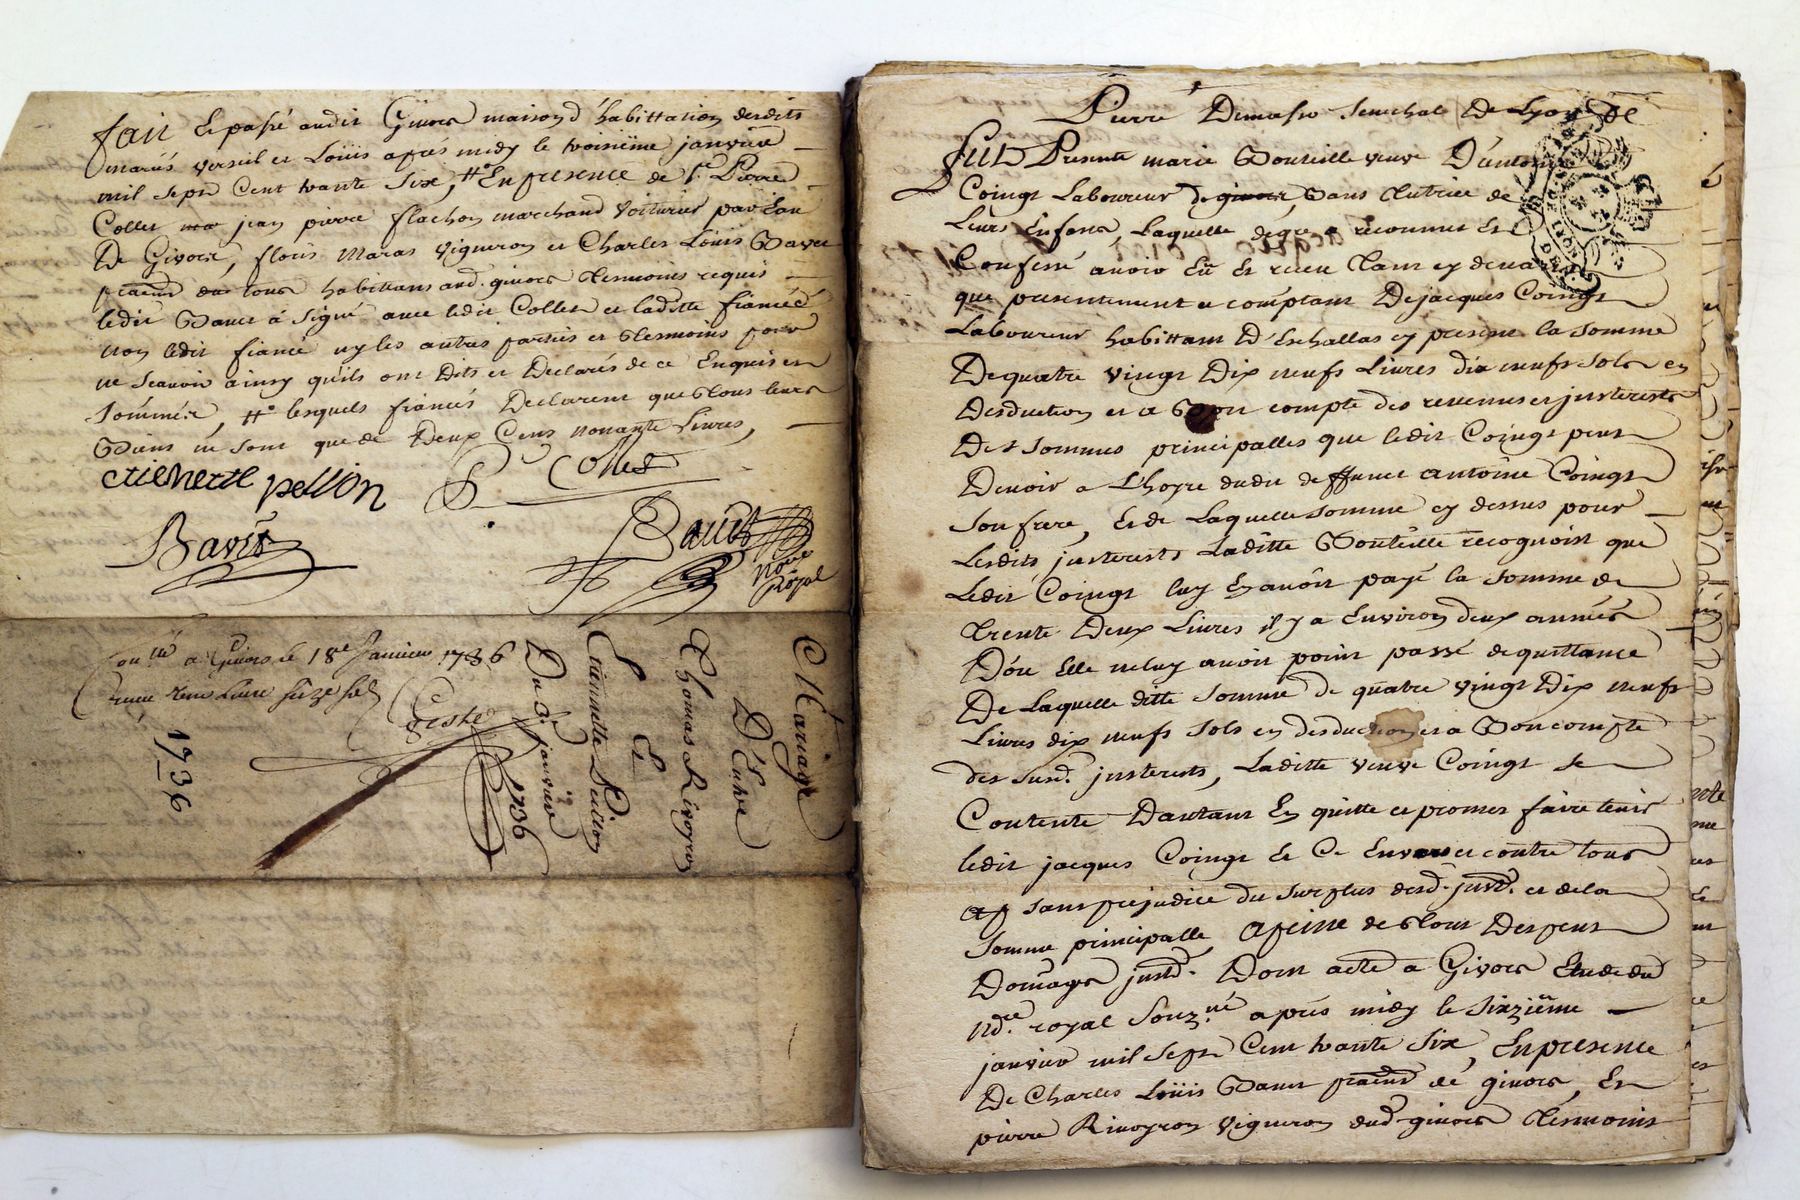 fait et passé audit Givors maison d'habittation desdits
mariés verseil et Loüis apres midy le troisiéme janvier
mil sept cent trante six, # En presence de Sr. Pierre
Collet jean pierre flachon marchand voiturier par Eau
De Givors, floris Maras vigneron et Charles Loüis Bavet
praticien tous habittans aud. givors tesmoins requis
ledit Bavet à signé avec ledit Collet et laditte fiancée
non ledit fiancé ny les autres parties et tesmoins pour
ne scavoir ainsy qu'ils ont Dits et Declarés de ce Enquis et
sommés, # lesquels fiancés Declarent que tous leurs
Biens ne sont que de Deux Cens nonante Livres,
etienerte pellion
P Collet
Bavet
Bavet
Nore
Royal
Conlé a Givors le 18e Janvier 1736
livre seize sols
Geste
1736
Mariage
D'Entre
Thomas Rivoyron
Et
Etiennette Peillon
Du 3e janvier
1736
Pierre Dimasso senechal De Lyon
fut Presente marie Bouteille veuve D'antoine
Coingt Laboureur de givors, Sans tutrice de
Leurs Enfans, Laquelle degré a reconnut Et
Confessé avoir Eü Et receu tant cy devant
que presentement et comptant De jacques Coingt
Laboureur habittant D'Eschallas cy present la somme
De quatre vingt Dix neufs Livres dix neufs sols en
Desduction et a Bon compte des revenus et justerests
Des sommes principalles que ledit Coingt peut
Devoir a L'hoyre dudit deffunct antoine Coingt
son frere, Et de Laquelle somme cy dessus pour
Lesdits justerests Laditte Bouteille recognoist que
Ledit Coingt luy En avoit payé la somme de
trente Deux Livres il y a Environ deux années
Dont Elle ne luy avoit point passé de quittance
De Laquelle ditte somme de quatre vingt Dix neufs
Livres dix neufs sols en desduction et a Bon compte
des susd. justerests, Laditte veuve Coingt se
Contente D'autant En quitte et promet faire tenir
ledit jacques Coingt Et Ce Envers et contre tous
sans prejudice du surplus desd. just. et de la
somme principalle, a peine de tous Despens
Domages just. Dont acte a Givors Etude du
Nore. royal souzné apres midy le sixziême
janvier mil sept cent trante six, En presence
De Charles Loüis Bavet praticien de givors, Et
pierre Rivoyron vigneron dud. givors tesmoins